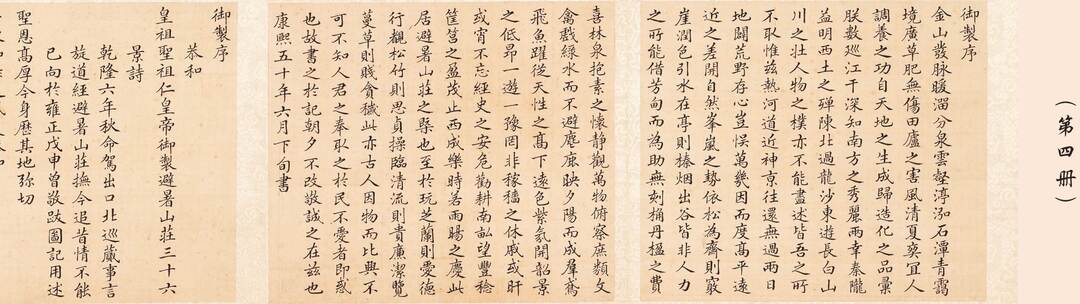 （第四冊）
御製序
金山發脉暖溜分泉雲壑渟泓石潭青靄
境廣草肥無傷田廬之害風清夏爽宜人
調養之功自天地之生成歸造化之品彙
朕數巡江干深知南方之秀麗兩幸秦隴
益明西土之殫陳北過龍沙東遊長白山
川之壯人物之樸亦不能盡述皆吾之所
不取惟茲熱河道近神京往還無過兩日
地闢荒野存心豈悞萬幾因而度高平遠
近之差開自然峯嵐之勢依松為齋則竅
崖潤色引水在亭則榛烟出谷皆非人力
之所能借芳甸而為助無刻桷丹楹之費
喜林泉抱素之懷靜觀萬物俯察庶類文
禽戲綠水而不避麀鹿映夕陽而成羣鳶
飛魚躍從天性之高下遠色紫氛開韶景
之低昂一遊一豫罔非稼穡之休戚或旰
或宵不忘經史之安危勸耕南畝望豐稔
筐筥之盈茂止西成樂時若雨暘之慶此
居避暑山莊之槩也至於玩芝蘭則愛德
行覩松竹則思貞操臨清流則貴廉潔覽
蔓草則賤貪穢此亦古人因物而比興不
可不知人君之奉取之於民不愛者即惑
也故書之於記朝夕不改敬誠之在茲也
康熙五十年六月下旬書
御製序
恭和
皇祖聖祖仁皇帝御製避暑山莊三十六
景詩
乾隆六年秋命駕出口北巡蒇事言
旋道經避暑山莊撫今追昔情不能
已向於雍正戊申曾敬跋圖記用述
聖恩高厚今身歷其地彌切